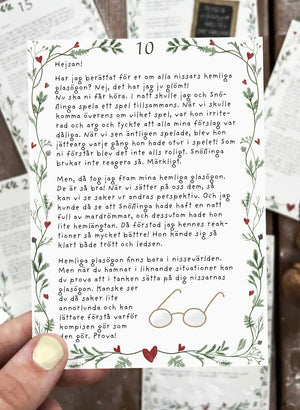 10
Hejsan!
Har jag berättat för er om alla nissars hemliga
glasögon? Nej, det har jag ju glömt!
Nu ska ni få höra. I natt skulle jag och Snö-
flinga spela ett spel tillsammans. När vi skulle
komma överens om vilket spel, var hon irrite-
rad och arg och tyckte att alla mina förslag var
dåliga. När vi sen äntligen spelade, blev hon
jättearg varje gång hon hade otur i spelet! Som
ni förstår blev det inte alls roligt. Snöflinga
brukar inte reagera så. Märkligt.
Men, då tog jag fram mina hemliga glasögon.
De är så bra! När vi sätter på oss dem, så
kan vi se saker ur andras perspektiv. Och jag
kunde då se att Snöflinga hade haft en natt
full av mardrömmar, och dessutom hade hon
lite hemlängtan. Då förstod jag hennes reak-
tioner så mycket bättre! Hon kände sig så
klart både trött och ledsen.
Hemliga glasögon finns bara i nissevärlden.
Men när du hamnar i liknande situationer kan
du prova att i tanken sätta på dig nissarnas
glasögon. Kanske ser
du då saker lite
annorlunda och kan
lättare förstå varför
kompisen gör som
den gör. Prova!